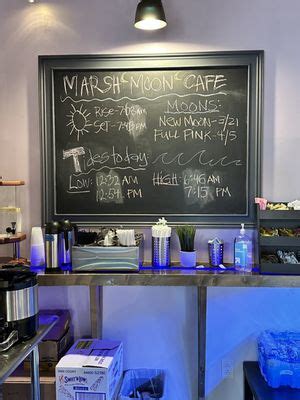 MARSH MOON CAFE
RISE - 7:08AM
SET - 7:48PM
MOONS:
NEW MOON - 3/21
FULL PINK - 4/5
Tides today
LOW: 12:32 AM
12:54 PM
HIGH: 6:46 AM
7:15 PM
SWEET'N LOW